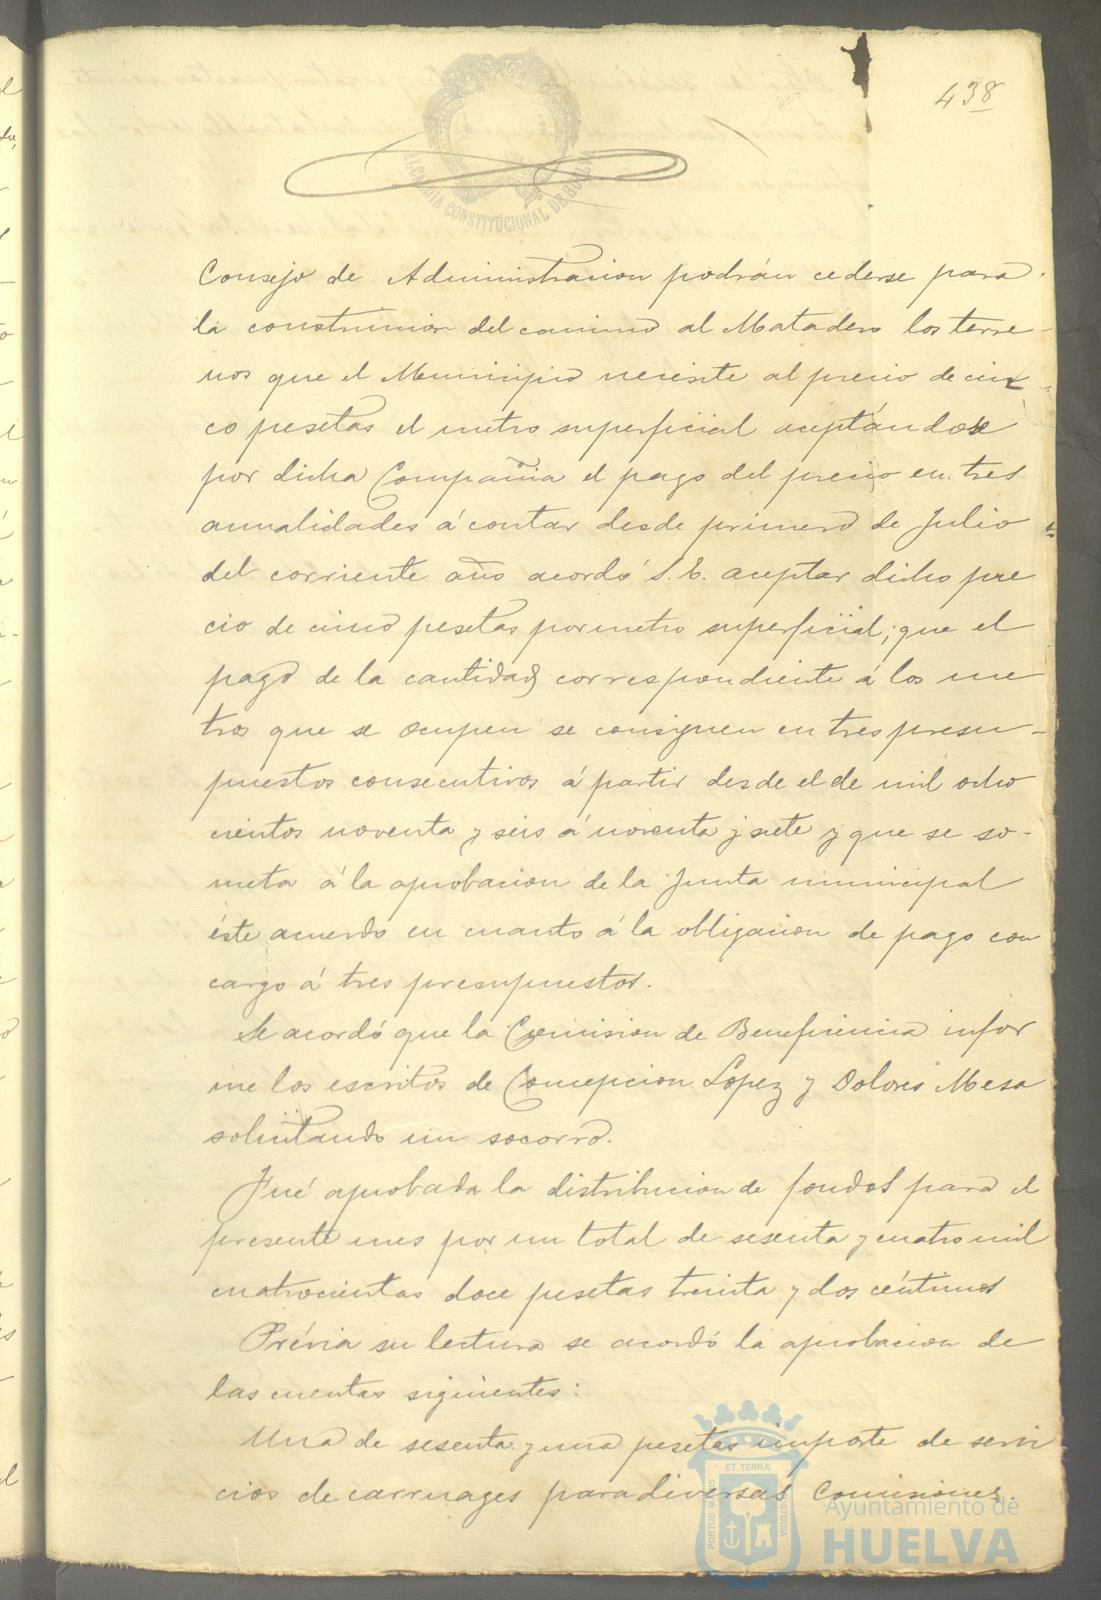 438
ALCALDIA CONSTITUCIONAL DE HUELVA
Consejo de Administracion podrán cederse para
la construccion del camino al Matadero los terre-
nos que el Municipio necesite al precio de cin-
co pesetas el metro superficial aceptándose
por dicha Compañia el pago del precio en tres
anualidades á contar desde primero de Julio
del corriente año acordó S. E. aceptar dicho pre
cio de cinco pesetas por metro superficial; que el
pago de la cantidad correspondiente á los me
tros que se ocupen se consignen en tres presu-
puestos consecutivos á partir desde el de mil ocho
cientos noventa y seis á noventa y siete y que se so-
meta á la aprobacion de la Junta municipal
éste acuerdo en cuanto á la obligacion de pago con
cargo á tres presupuestos.
Se acordó que la Comision de Beneficencia infor
me los escritos de Concepcion López y Dolores Mesa
solicitando un socorro.
Fué aprobada la distribucion de fondos para el
presente mes por un total de sesenta y cuatro mil
cuatrocientas doce pesetas treinta y dos céntimos
Prévia su lectura se acordó la aprobacion de
las cuentas siguientes:
Una de sesenta y una pesetas importe de servi
cios de carruages para diversas Comisiones.
PORTUS MARIS ET TERRÆ CUSTODIA
Ayuntamiento de
HUELVA